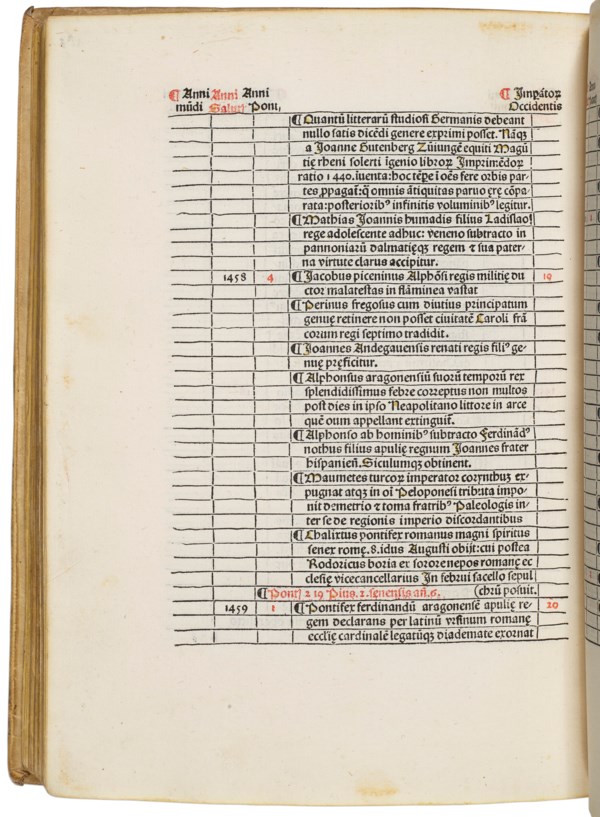 ¶ Anni Anni Anni ¶ Imp̱ator
mūdi Salut̛ Pont, Occidentis
¶ Quantū litterarū studiosi Germanis debeant
nullo satis dicēdi genere exprimi posset. Nāqꝫ
a Joanne Gutenberg Zūiungē equiti Magū
tię rheni solerti īgenio libroꝝ Imprimēdoꝝ
ratio 1440. iuenta: hoc tēpe īoēs fere orbis par-
tes ꝓpagat̄: q̄ omnis ātiquitas paruo ęre cōpa-
rata: posteriorib᾽ infinitis voluminib᾽ legitur.
¶ Mathias Joannis humadis filius Ladislao
rege adolescente adhuc: veneno subtracto in
pannoniarū dalmatięqꝫ regem ⁊ sua pater-
na virtute clarus accipitur.
1458 4 ¶ Jacobus piceninus Alphōsi regis militię du 19
ctor malatestas in flāminea vastat
¶ Perinus fregosus cum diutius principatum
genuę retinere non posset ciuitatē Caroli frā
corum regi septimo tradidit.
¶ Joannes Andegauensis renati regis fili᾽ ge-
nuę pręficitur.
¶ Alphonsus aragonensiū suorū temporū rex
splendidissimus febre correptus non multos
post dies in ipso Neapolitano littore in arce
quē oum appellant extinguit̄.
¶ Alphonso ab hominib᾽ subtracto Ferdinād᾽
nothus filius apulię regnum Joannes frater
hispanien̄. Siculumqꝫ obtinent.
¶ Maumetes turcoꝝ imperator corynthuꝫ ex-
pugnat atqꝫ in oī Peloponesi tributa impo-
nit demetrio ⁊ toma fratrib᾽ Paleologis in-
ter se de regionis imperio discordantibus
¶ Chalixtus pontifex romanus magni spiritus
senex romę. 8. idus Augusti obijt: cui postea
Rodoricus boria ex sorore nepos romanę ec
clesię vicecancellarius In februi sacello sepul
¶ Pont̛ 219 Pius. 2. senensis an̄. 6. (chrū posuit.
1459 1 ¶ Pontifex ferdinandū aragonensē apulię re- 20
gem declarans per latinū vrsinum romanę
ecclię cardinalē legatūqꝫ diademate exornat